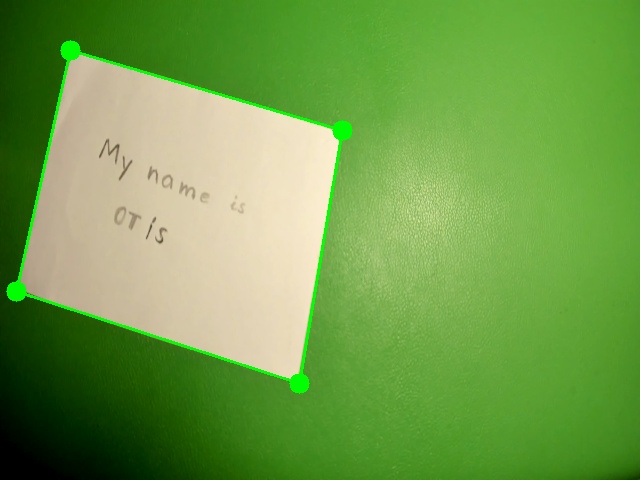 My name is
OTis